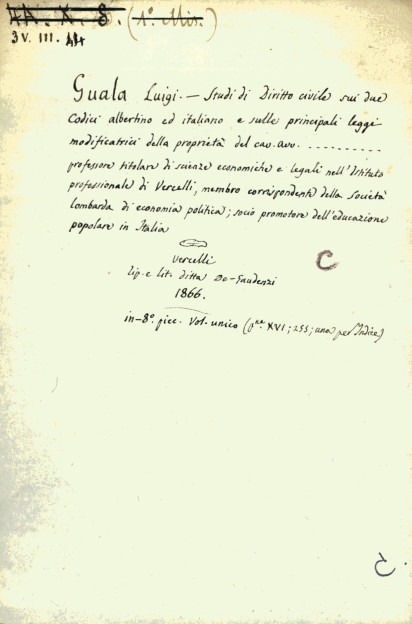 AA. X. 8. (1º. Mis.)
3V. III. 44
Guala Luigi. — Studi di Diritto civile sui due
Codici albertino ed italiano e sulle principali leggi
modificatrici della proprietà del cav. avv. ..........
professore titolare di scienze economiche e legali nell'Istituto
professionale di Vercelli, membro corrispondente della Società
lombarda di economia politica; socio promotore dell'educazione
popolare in Italia
Vercelli
Tip. e lit. ditta De-Gaudenzi
1866.
in-8º. picc. Vol. unico (p.ne XVI; 255; una per l'Indice)
C